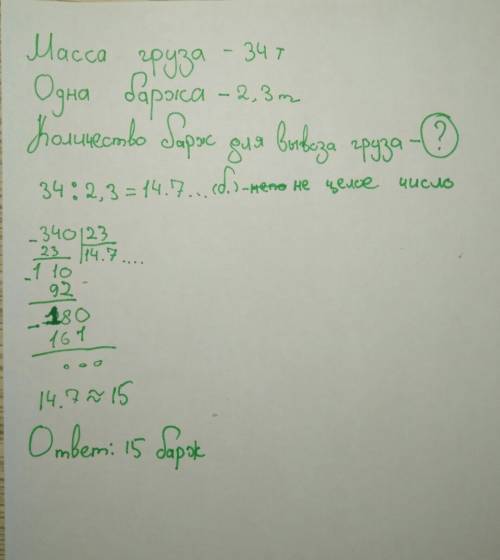 Масса груза - 34 т
Одна баржа - 2,3 т
Количество барж для вывоза груза - ?
34 : 2,3 = 14.7... (б.) - не целое число
- 340 23
23 14.7....
- 110
92
- 180
161
...
14.7 ≈ 15
Ответ: 15 барж